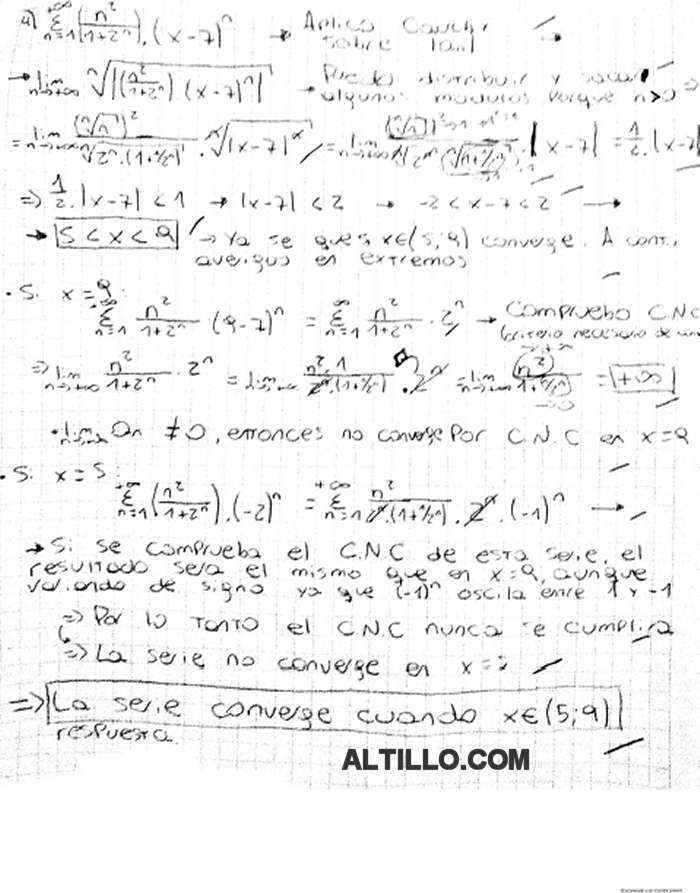 4) +∞ Σ n=1 (n²/(1+2ⁿ)) . (x-7)ⁿ → Aplico Cauchy sobre |an|
→ lim n→+∞ ⁿ√|(n²/(1+2ⁿ)) . (x-7)ⁿ| → Puedo distribuir y sacar algunos modulos porque n>0 ⇒
= lim n→+∞ (ⁿ√n)²/ⁿ√(2ⁿ.(1+1/2ⁿ)) . ⁿ√|x-7|ⁿ = lim n→+∞ . |x-7| = 1/2 . |x-7|
⇒ 1/2 . |x-7| < 1 → |x-7| < 2 → -2 < x-7 < 2 →
→ 5 < x < 9 → Ya se que si x∈(5;9) converge. A cont.
averiguo en extremos
• Si x=9:
∞ Σ n=1 n²/(1+2ⁿ) (9-7)ⁿ = ∞ Σ n=1 n²/(1+2ⁿ) . 2ⁿ → Compruebo C.N.C
(criterio necesario de
⇒ lim n→+∞ n²/(1+2ⁿ) . 2ⁿ = lim n→∞ n².1/(2ⁿ.(1+1/2ⁿ)) . 2ⁿ = lim n→∞ (n²)/(1+1/2ⁿ) = +∞
• lim n→∞ an ≠0, entonces no converge por C.N.C en x=9
• Si x=5:
+∞ Σ n=1 (n²/(1+2ⁿ)) . (-2)ⁿ = +∞ Σ n=1 n²/(2ⁿ.(1+1/2ⁿ)) . 2ⁿ . (-1)ⁿ →
→ Si se comprueba el C.N.C de esta serie, el
resultado sera el mismo que en x=9, aunque
variando de signo ya que (-1)ⁿ oscila entre 1 y -1
⇒ Por lo tanto el C.N.C nunca se cumplira
⇒ La serie no converge en
⇒ La serie converge cuando x∈(5;9)
respuesta.
ALTILLO.COM